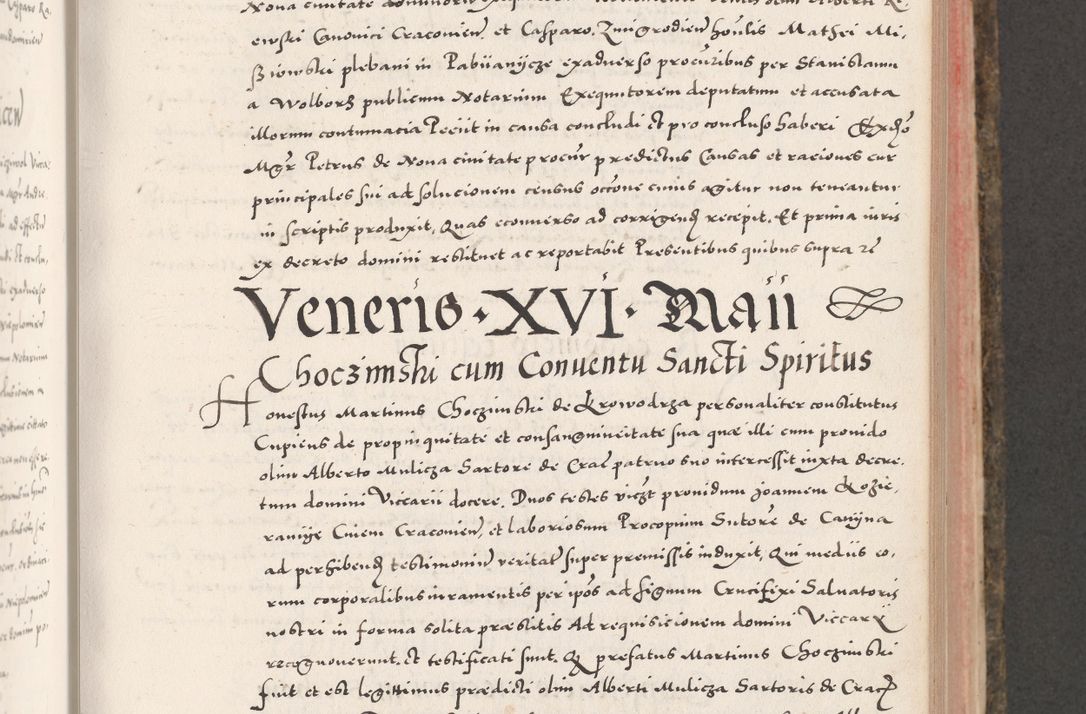 ewski Canonici Cracovien̄ et Casparo Zmigrodien̄ hoūlis Mathei Mi,
ßiowski plebani in Pabiianycze exadverso procūribus per Stanislaum
a Wolborz publicum Notarium Exequutorem deputatum et accusata
illorum contumacia Peciit in causa concludi et pro concluso haberi
Mgr̄ Petrus de Nova civitate procūr predictus Causas et raciones cur
principales sui ad solucionem census occōne cuius agitur non teneantur
in scriptis produxit, Quas econverso ad corrigend̄ recepit, Et prima iuris
ex decreto domini restituet ac reportabit Presentibus quibus supra
Veneris · XVI · Maii
Choczimski cum Conventu Sancti Spiritus
Honestus Martinus Choczimski de Krowodrza personaliter constitutus
Cupiens de propinquitate et consanguineitate sua quæ illi cum provido
olim Alberto Mulicza Sartore de Crac̄ patruo suo intercessit iuxta decre,
tum domini Viccarii docere, Duos testes providum Joannem Kozie,
ranije Civem Cracovien̄, et laboriosum Procopium Sutore de
ad perhibend̄ testimoniū veritat̄ super premissis induxit, Qui mediis eo,
rum corporalibus iuramentis per ipōs ad signum Crucifixi Salvatoris
nostri in forma solita præstitis Ad requisicionem domini Viccarii
recognoverunt, et testificati sunt, Q̄ prefatus Martinus Choczimski
fuit et est legittimus prædicti olim Alberti Mulicza Sartoris de Crac̄